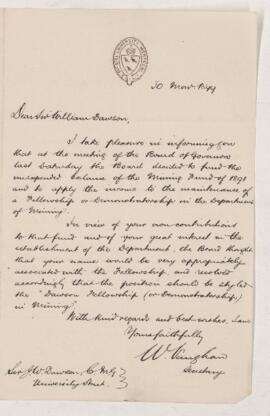 30 Nov. 1899
Dear Sir William Dawson,
I take pleasure in informing you
that at the meeting of the Board of Governors
last Saturday the Board decided to fund the
unexpended balance of the Mining Fund of 1891
and to apply the income to the maintenance of
a Fellowship or Demonstratorship in the Department
of Mining.
In view of your own contributions
to that fund and of your great interest in the
establishment of the Department, the Board thought
that your name would be very appropriately
associated with the Fellowship, and resolved
accordingly that the position should be styled
the "Dawson Fellowship (or Demonstratorship)
in Mining".
With kind regards and best wishes, I am
Yours faithfully
W Vaughan
Secretary
Sir J. W. Dawson, C.M.G.
University Street.